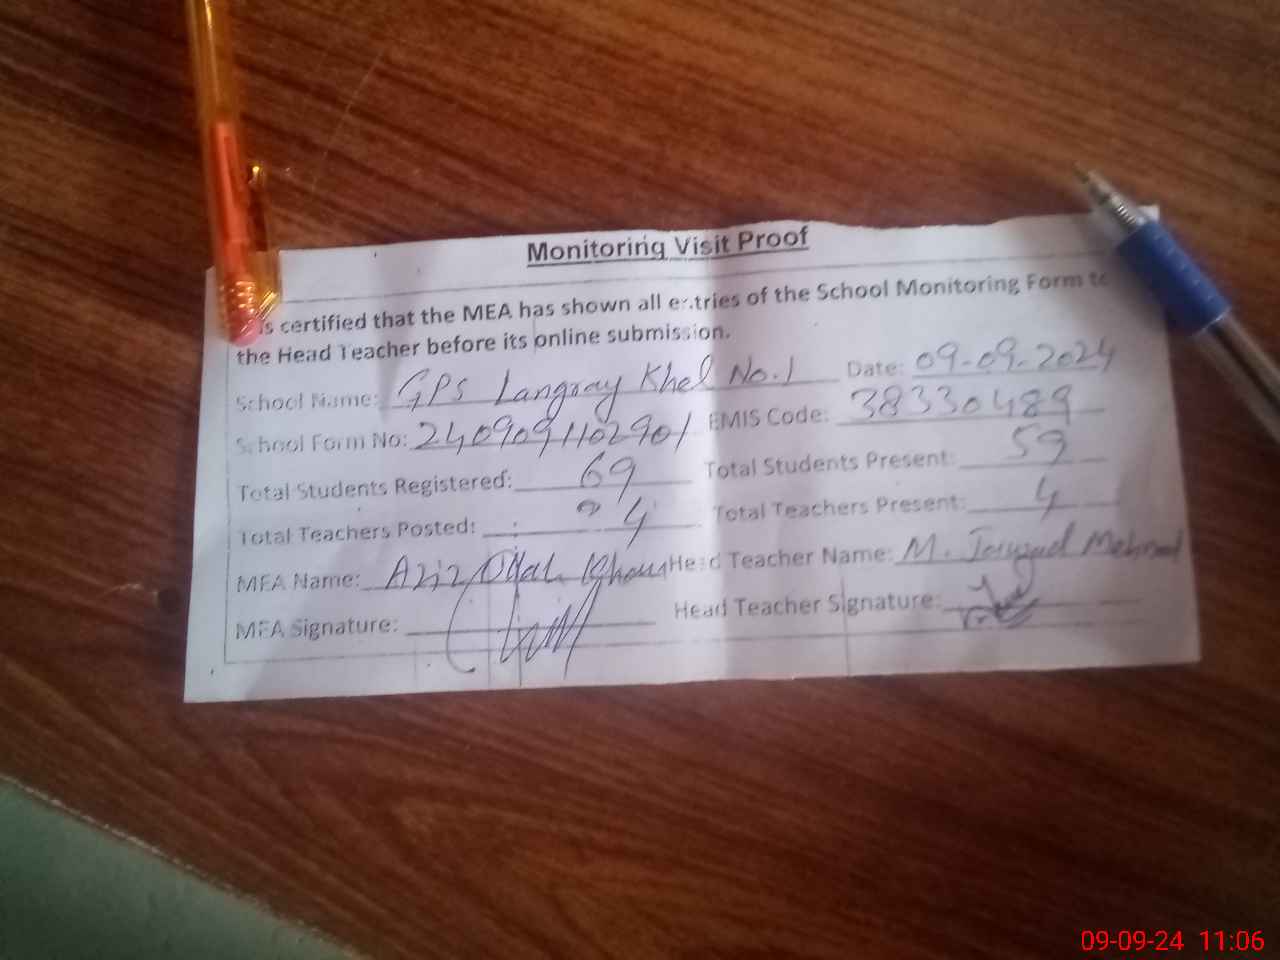 Monitoring Visit Proof
is certified that the MEA has shown all entries of the School Monitoring Form to
the Head Teacher before its online submission.
School Name: GPS Langray Khel No.1 Date: 09-09-2024
School Form No: 2409091102901 EMIS Code: 38330489
Total Students Registered: 69 Total Students Present: 59
Total Teachers Posted: 4 Total Teachers Present: 4
MEA Name: Aziz Head Teacher Name: M.
MEA Signature: Head Teacher Signature:
09-09-24 11:06